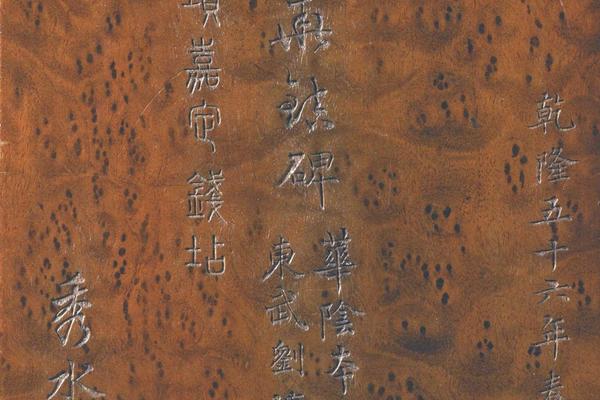 乾隆五十六年春
碑
華陰本
東武劉
嘉定錢坫
秀水